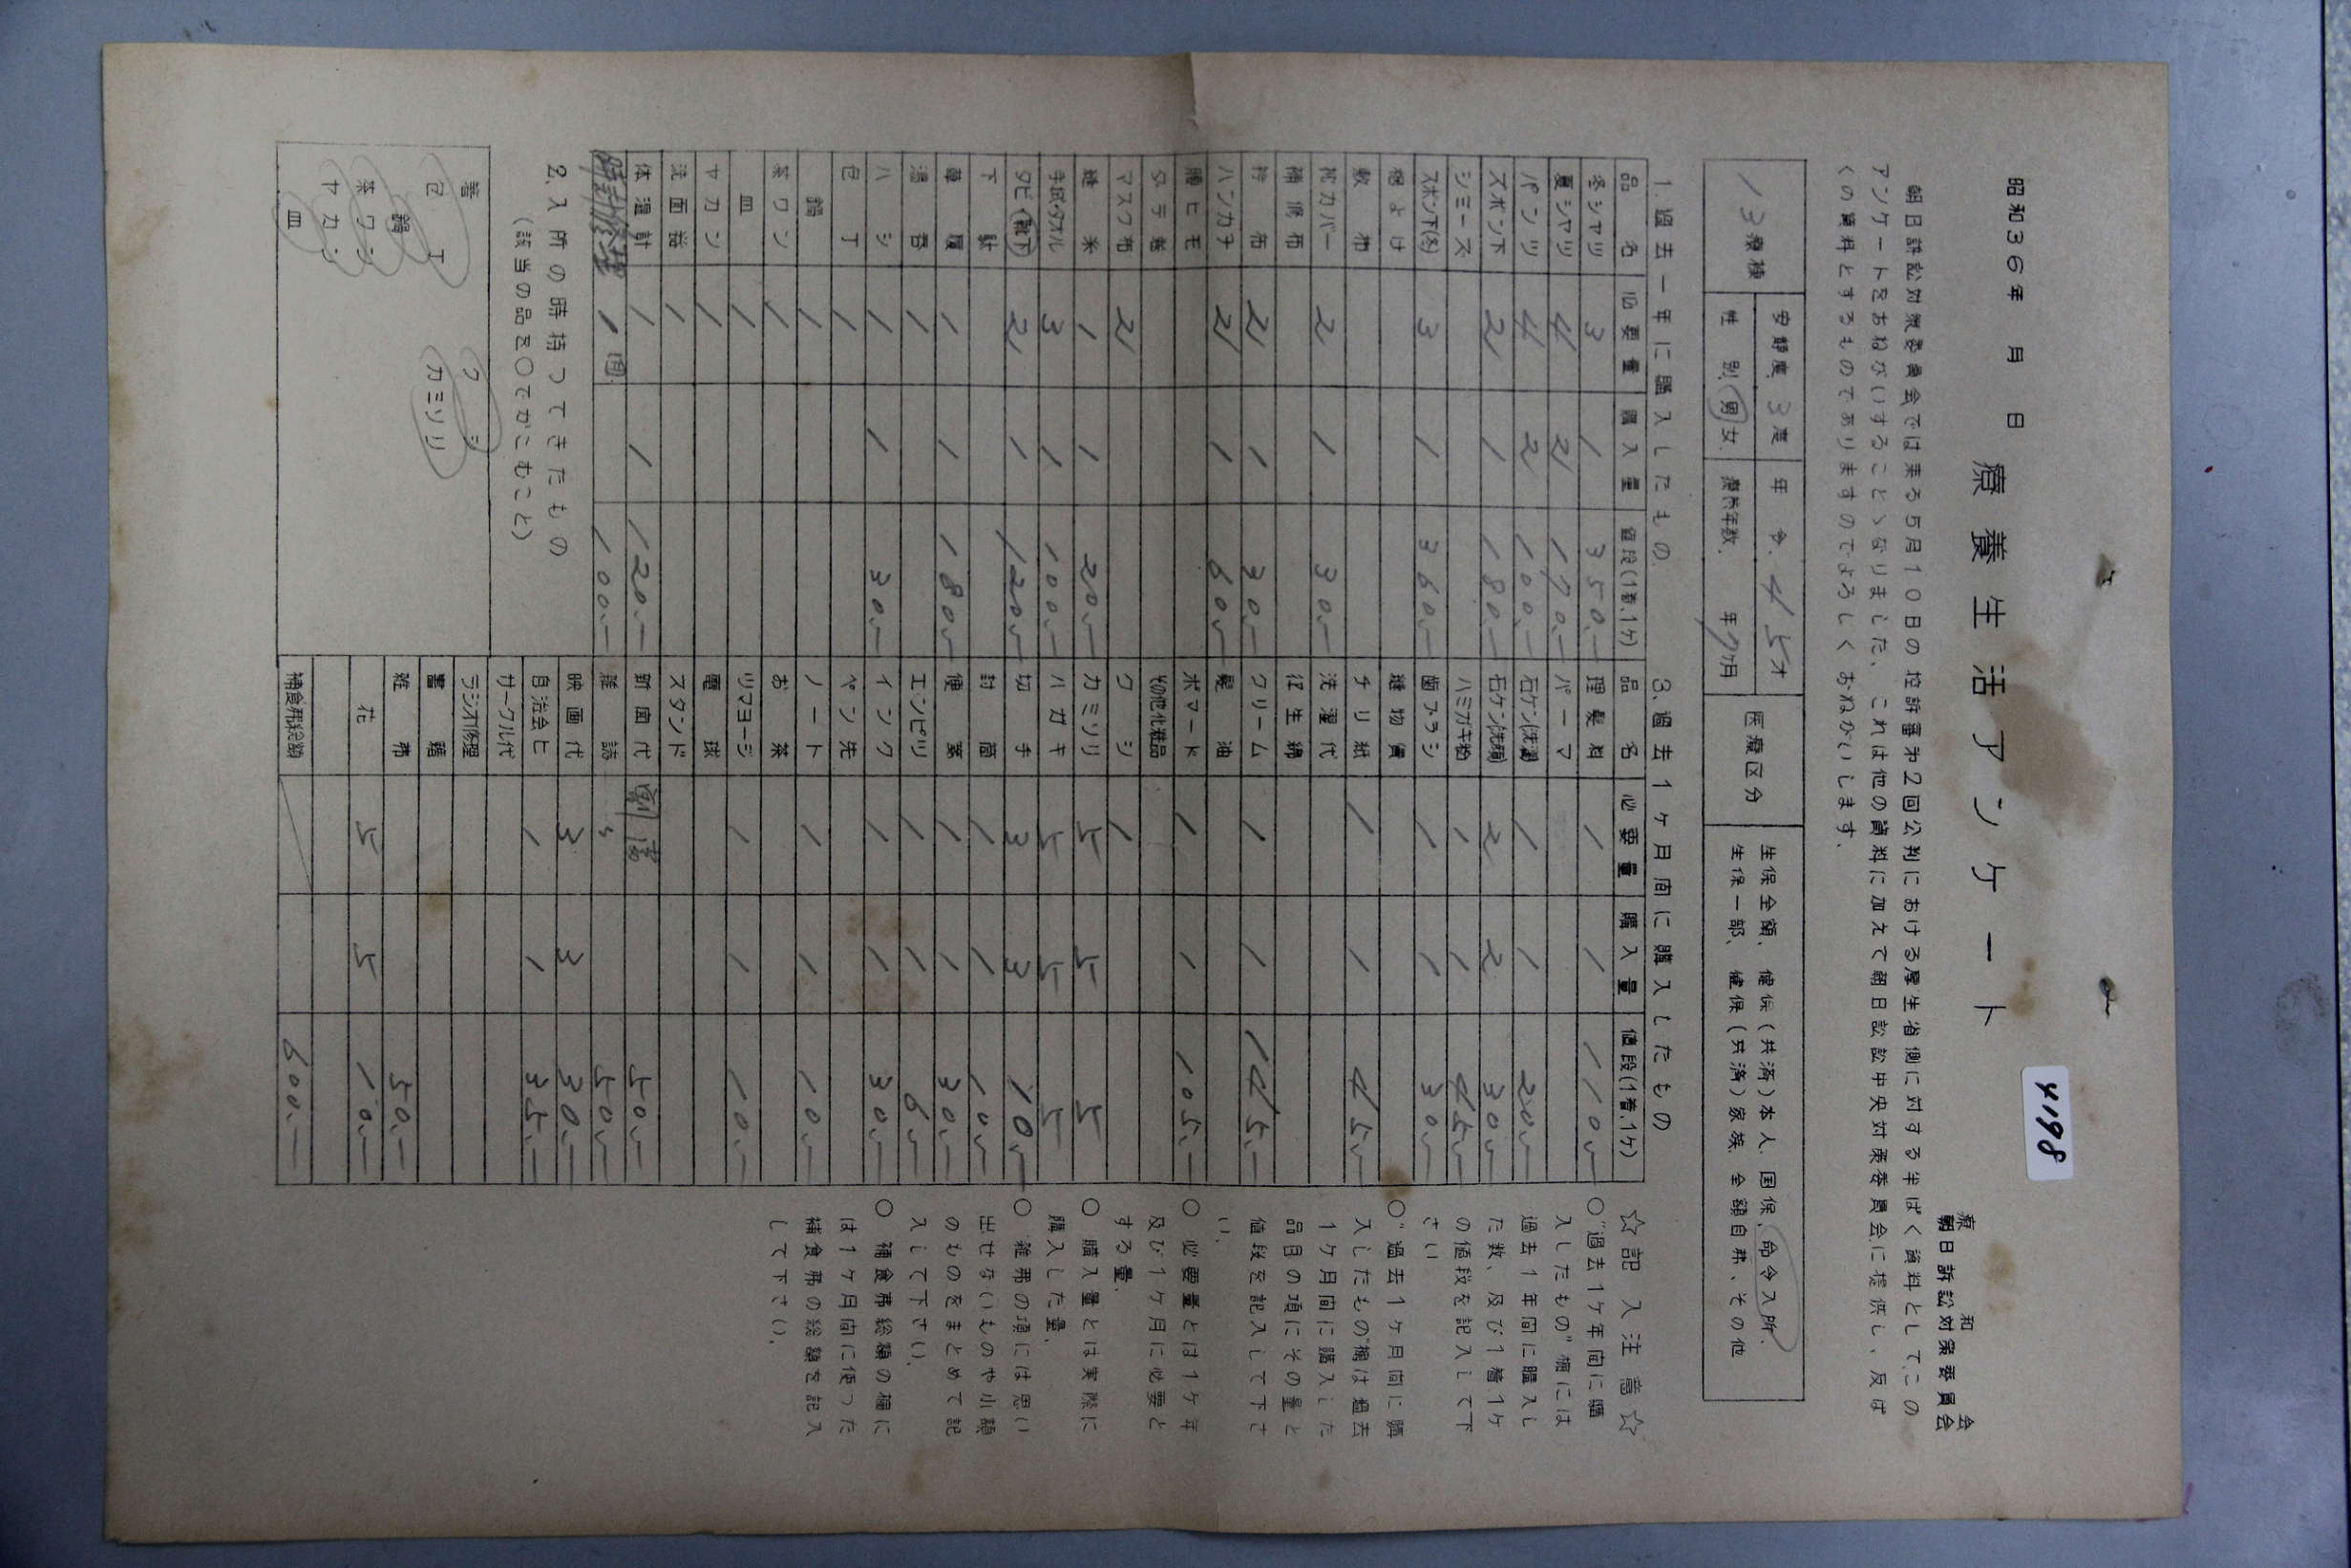 4198
昭和36年　月　日
療養生活アンケート
療和会
朝日訴訟対策委員会
朝日訴訟対策委員会では来る5月10日の控訴審第2回公判における厚生省側に対する半ばく資料としてこの
アンケートをおねがいすることゝなりました、これは他の資料に加えて朝日訴訟中央対策委員会に提供し、反ば
くの資料とするものでありますのでよろしくおねがいします.
13療棟
安静度 3度 年令 45才
性別 男 女 療養年数 年7ヶ月
医療区分
生保全額、健保(共済)本人、国保、命令入所、
生保一部、健保(共済)家族、全額自弗、その他
1.過去一年に購入したもの
品名 必要量 購入量 値段(1着、1ケ)
冬シヤツ 3 1 350.―
夏シヤツ 4 2 170.―
パンツ 4 2 100.―
ズボン下 2 1 180.―
シミーズ
スボン下(冬) 3 1 360.―
敷布
枕カバー 2 1 30.―
補修布
衿布 2 1 30.―
ハンカチ 2 1 60.―
腰ヒモ
マスク布 2
縫糸 1 1 20.―
手拭・タオル 3 1 100.―
タビ(靴下) 2 1 120.―
下駄
草履 1 1 180.―
湯呑 1
ハシ 1 1 30.―
包丁 1
鍋 1
茶ワン 1
皿 1
ヤカン 1
洗面器 1
体温計 1 1 120.―
時計修理 1回 100.―
2.入所の時持つてきたもの
(該当の品を〇でかこむこと)
箸 クシ
包丁 カミソリ
鍋
茶ワン
ヤカン
皿
3.過去1ヶ月間に購入したもの
品名 必要量 購入量 値段(1着、1ケ)
理髪料 1 1 110.―
パーマ
石ケン(洗濯) 1 1 20.―
石ケン(洗顔) 2 2 30.―
ハミガキ粉 1 1 45.―
歯ブラシ 1 1 30.―
縫物賃
チリ紙 1 1 45.―
洗濯代
クリーム 1 1 145.―
髪油
ポマード 1 1 105.―
その他化粧品
クシ 1
カミソリ 5 5 5
ハガキ 5 5 5
切手 3 3 10.―
封筒 1 1 10.―
便箋 1 1 30.―
エンピツ 1 1 6.―
インク 1 1 30.―
ペン先
ノート 1 1 10.―
お茶
ツマヨージ 1 1 10.―
電球
スタンド
新聞代 50.―
雑誌 50.―
映画代 3 3 30.―
自治会ヒ 1 1 35.―
サークル代
ラジオ修理
書籍
雑弗 50.―
花 5 5 10.―
補食弗総額 600.―
☆記入注意☆
〇"過去1ヶ年間に購
入したもの"欄には
過去1年間に購入し
た数、及び1着1ケ
の値段を記入して下
さい
〇"過去1ヶ月間に購
入したもの"欄は過去
1ヶ月間に購入した
品目の項にその量と
値段を記入して下さ
い、
〇 必要量とは1ヶ年
及び1ヶ月に必要と
する量、
〇 購入量とは実際に
購入した量、
〇 雑弗の項には思い
出せないものや小額
のものをまとめて記
入して下さい、
〇 補食弗総額の欄に
は1ヶ月間に使つた
補食弗の総額を記入
して下さい、